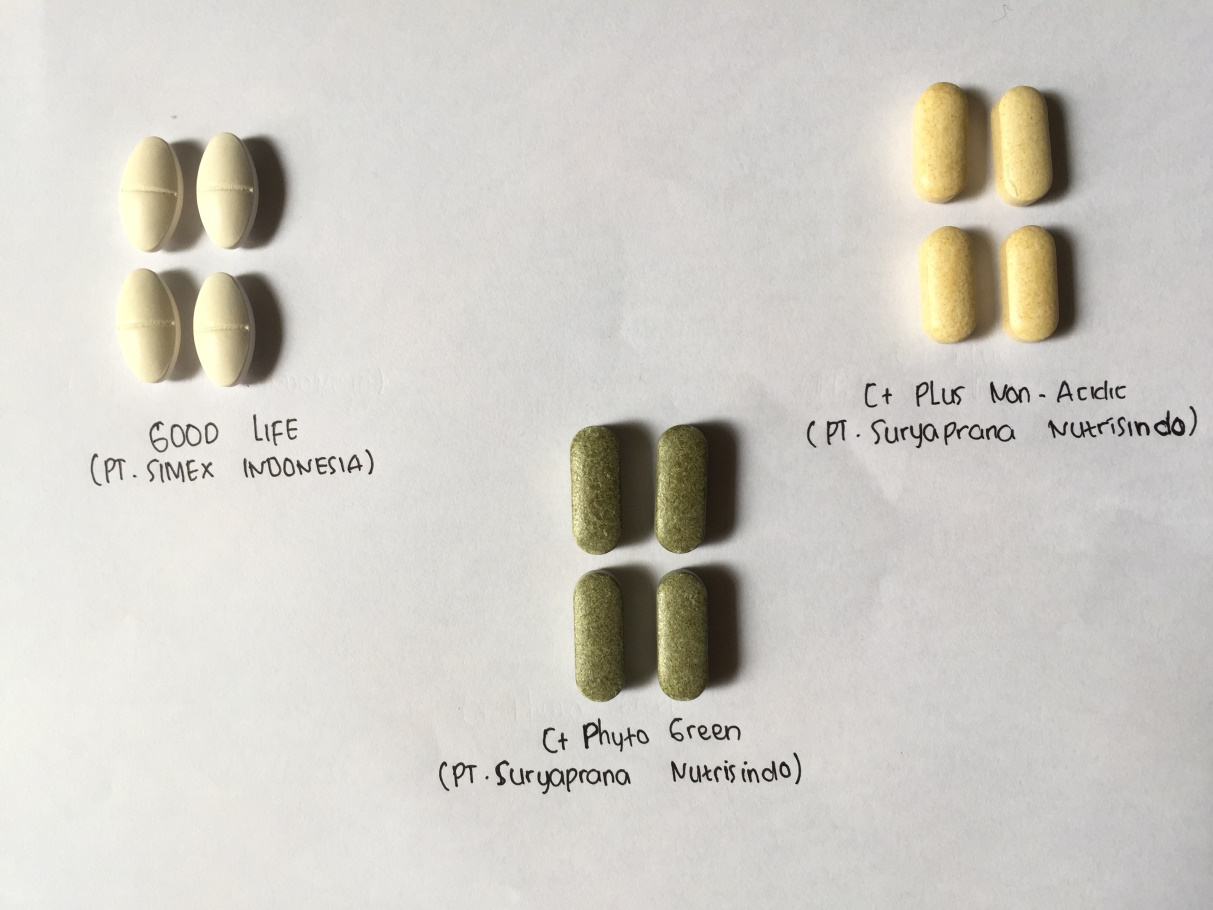 GOOD LIFE
(PT. SIMEX INDONESIA)
C+ PLus Non-Acidic
(PT. Suryaprana Nutrisindo)
C+ Phyto Green
(PT. Suryaprana Nutrisindo)